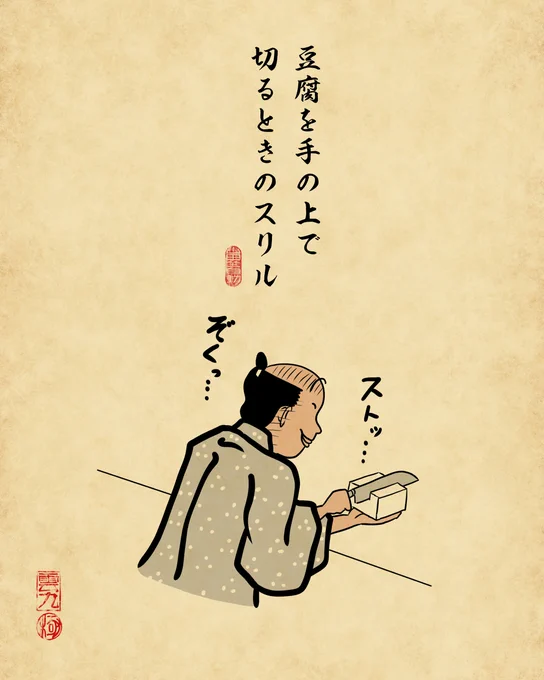 豆腐を手の上で
切るときのスリル
ぞくっ…
ストッ…